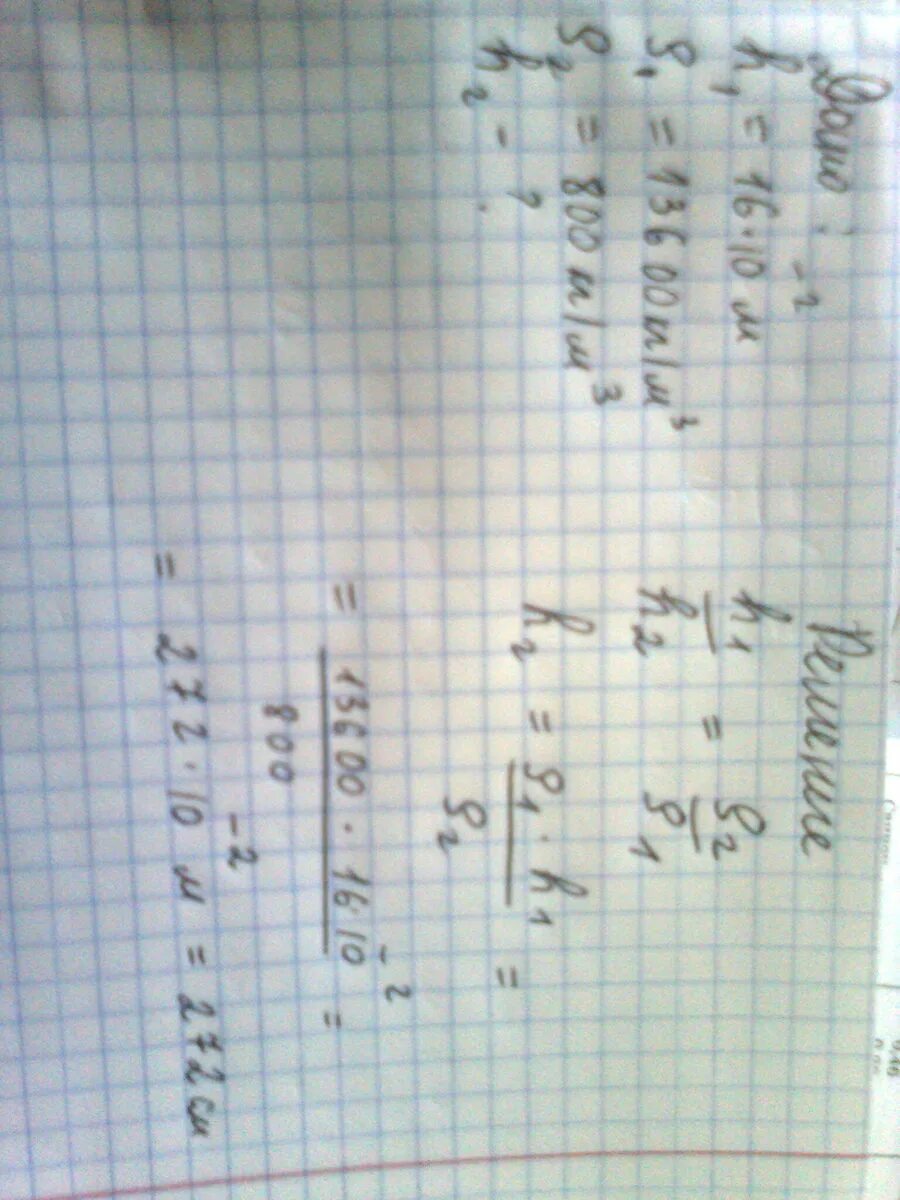 Дано:
h₁ = 16·10⁻² м
ρ₁ = 13600 кг/м³
ρ₂ = 800 кг/м³
h₂ - ?
Решение
h₁/h₂ = ρ₂/ρ₁
h₂ = ρ₁·h₁/ρ₂ =
= 13600·16·10⁻²/800 =
= 272·10⁻² м = 272 см